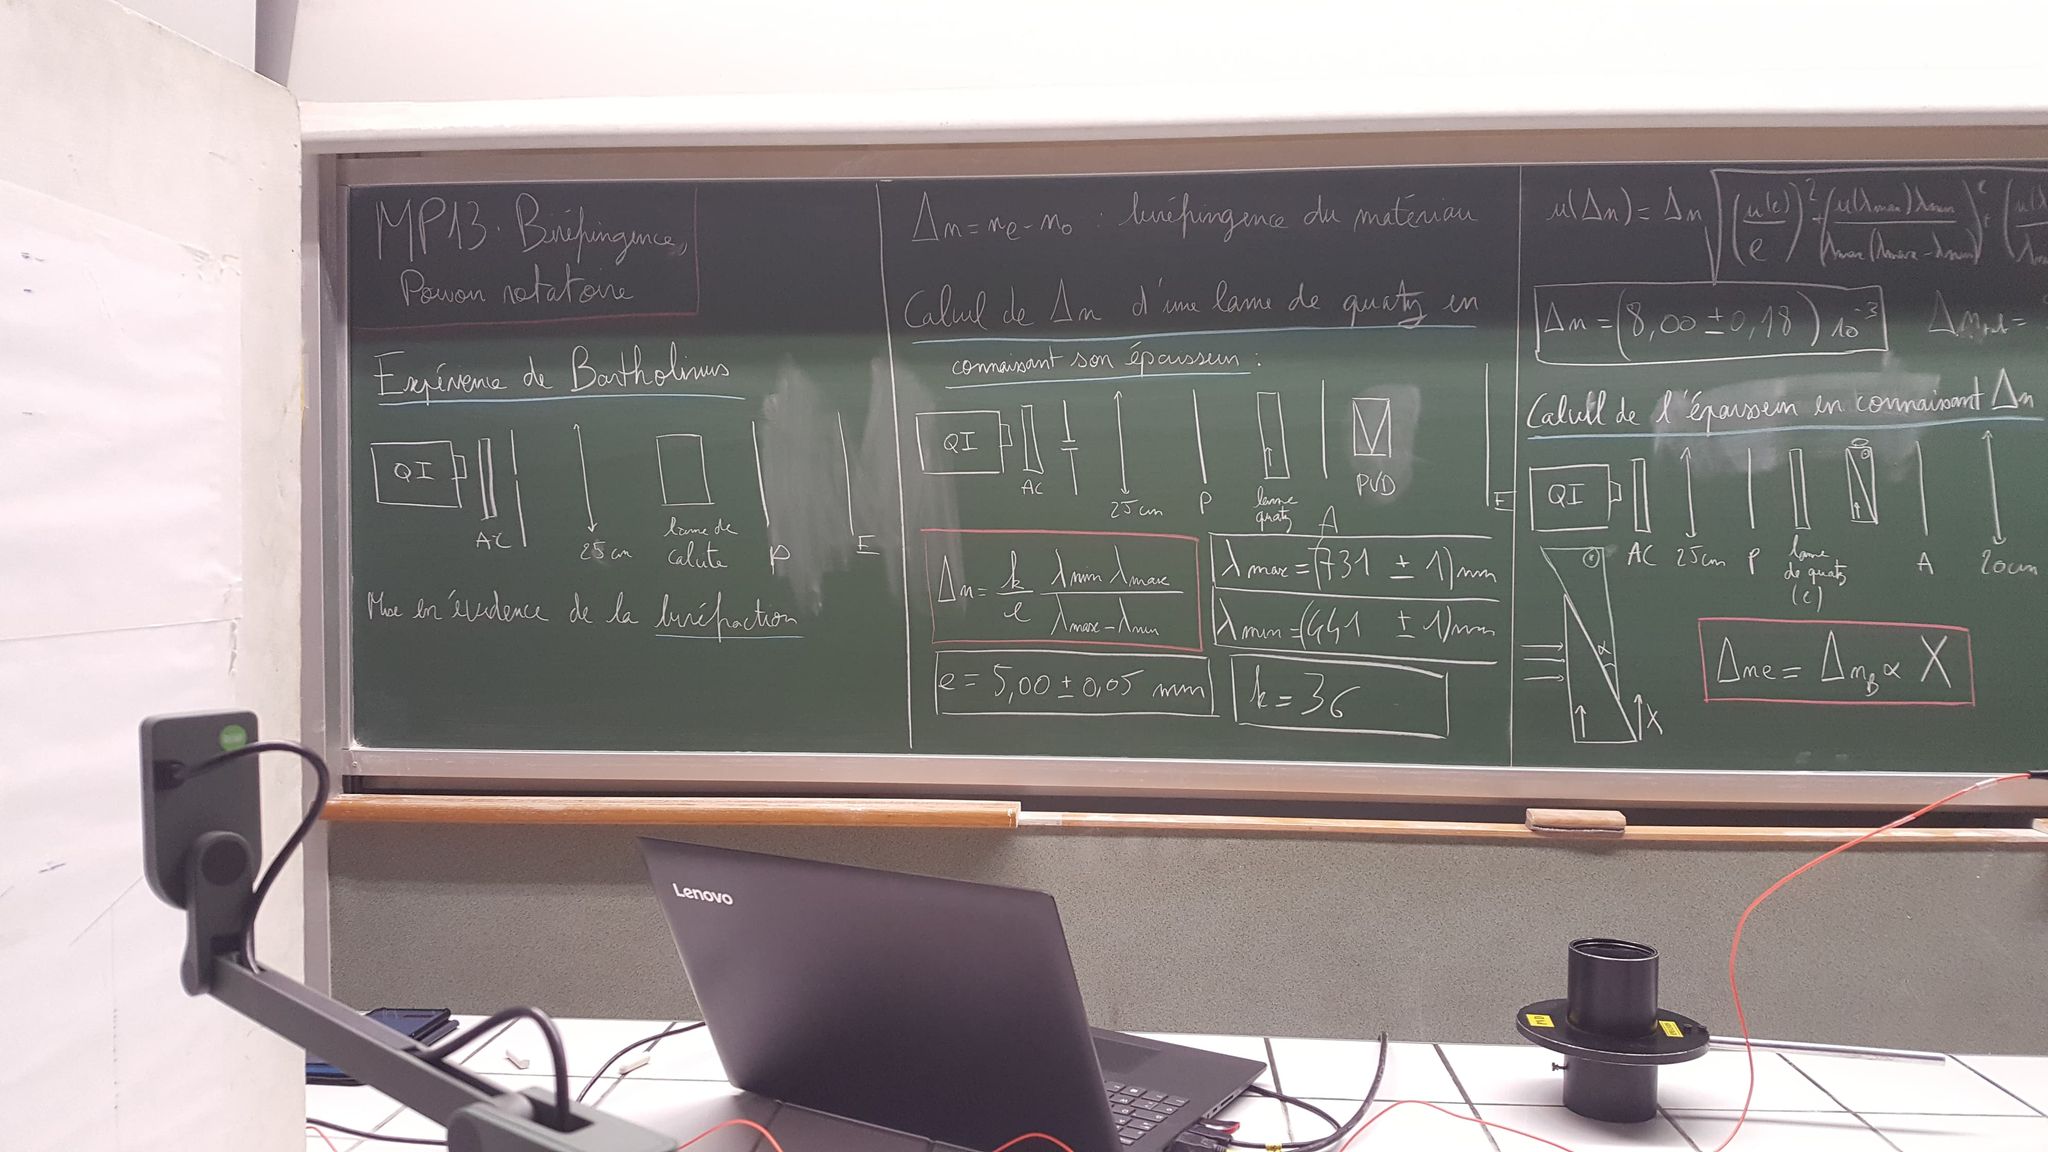 MP13. Biréfringence,
Pouvoir rotatoire
Expérience de Bartholinus
QI
AC
25 cm
lame de
calcite
P
E
Mise en évidence de la biréfraction
Δn = ne - no : biréfringence du matériau
Calcul de Δn d'une lame de quartz en
connaissant son épaisseur :
QI
AC
25 cm
P
lame
quartz
A
PVD
E
Δn = k/e λmin λmax / (λmax - λmin)
λmax = (731 ± 1) nm
λmin = (441 ± 1) nm
e = 5,00 ± 0,05 mm
k = 36
u(Δn) = Δn √ (u(e)/e)² + (u(λmax) λmin / λmax(λmax - λmin))² + (
Δn = (8,00 ± 0,18) 10⁻³
Δn =
Calcul de l'épaisseur en connaissant Δn
QI
AC
25 cm
P
lame
de quartz
(e)
A
20 cm
α
X
Δn e = ΔnB α X
Lenovo